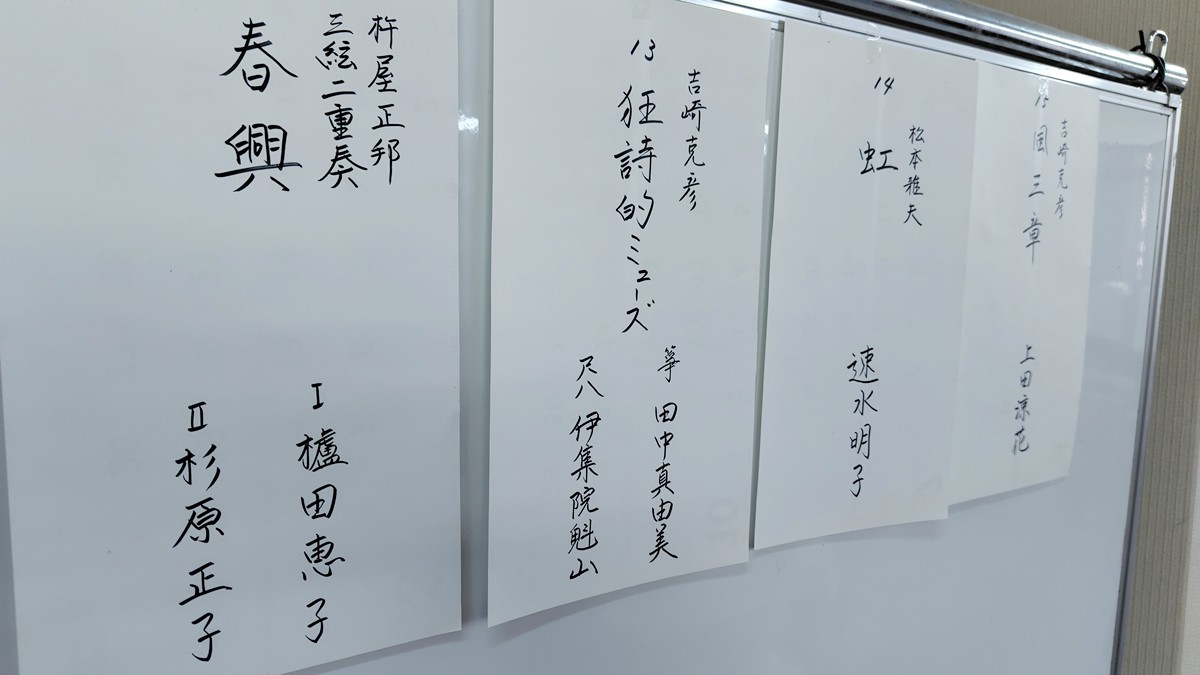 杵屋正邦
三絃二重奏
春興
I 櫨田恵子
II 杉原正子
13
吉崎克彦
狂詩的ミューズ
箏 田中真由美
尺八 伊集院魁山
14
松本雅夫
虹
速水明子
15
吉崎克彦
三章
上田涼花